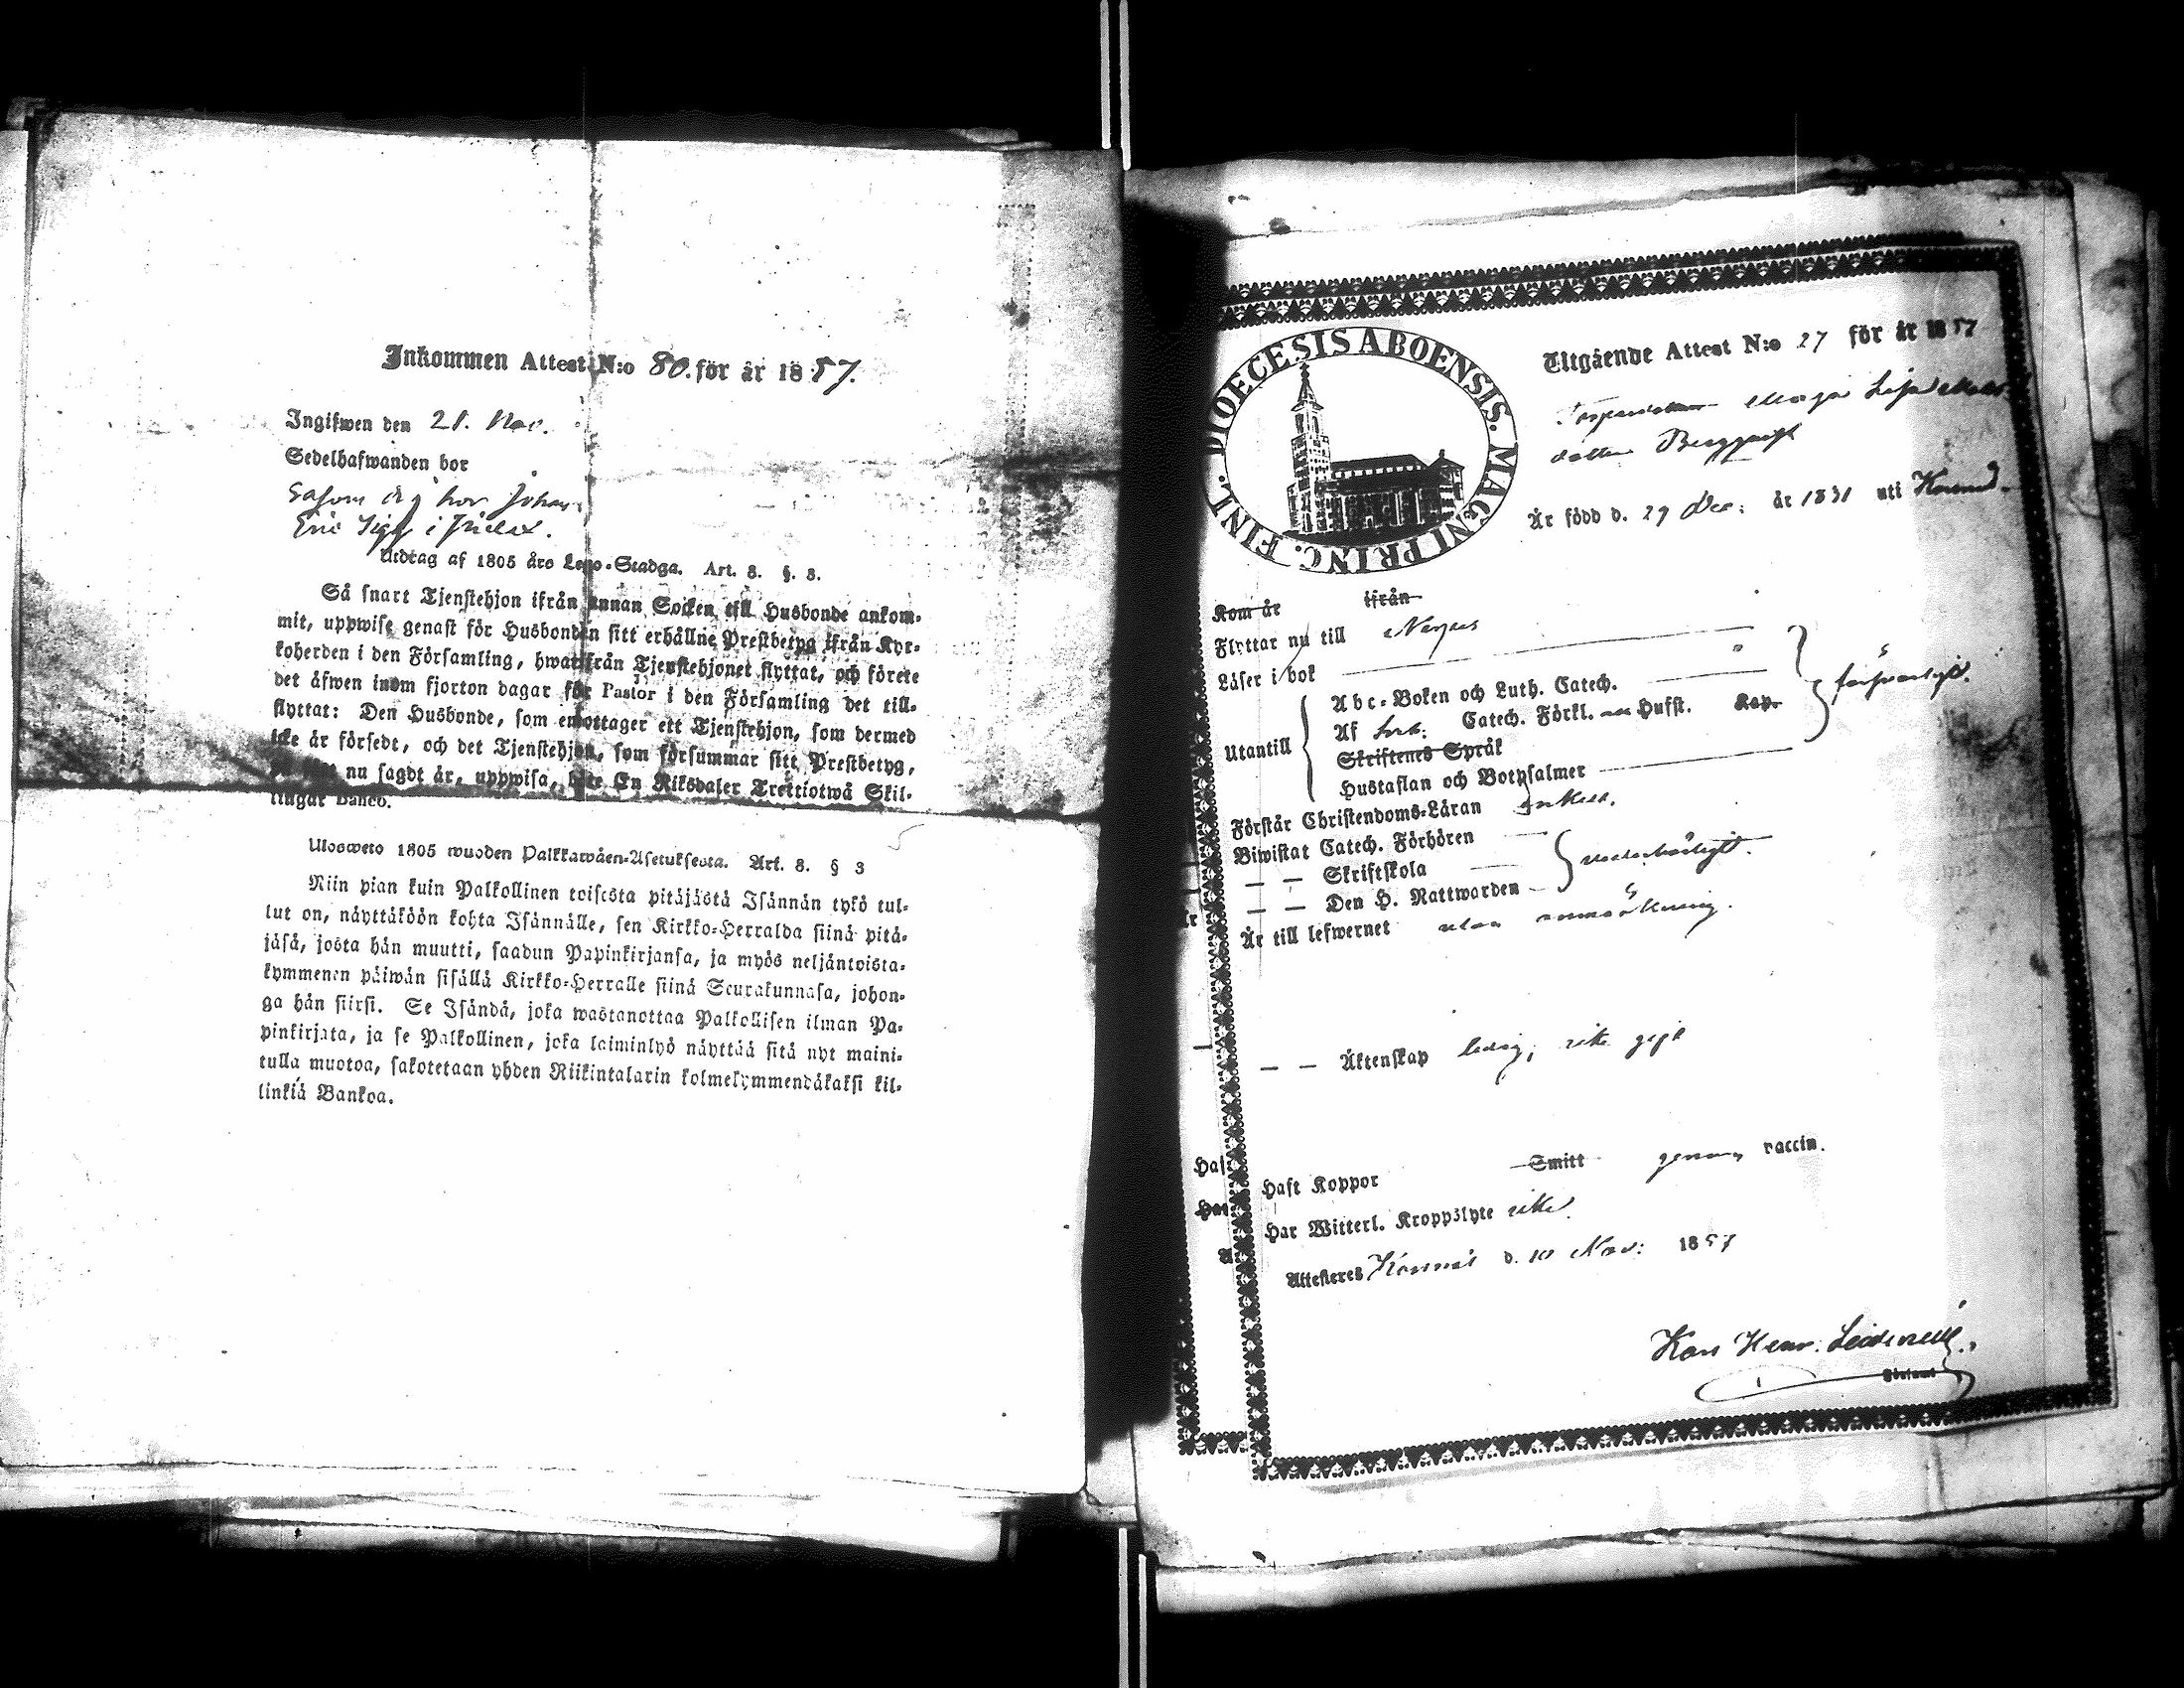 Inkommen Attest N:o 80. för år 1857.
Ingifwen den 21. Nov.
Sedelhafwanden bor
Såsom hos Johan
Eric i
Utdrag af 1805 års Lego-Stadga. Art. 8. §. 3.
Så snart Tjenstehjon ifrån annan Socken till Husbonde ankom-
mit, uppwise genast för Husbonden sitt erhållne Prestbetyg ifrån Kyr-
koherden i den Församling, hwarifrån Tjenstehjonet flyttat, och förete
det äfwen inom fjorton dagar för Pastor i den Församling det till-
flyttat: Den Husbonde, som emottager ett Tjenstehjon, som dermed
icke är försedt, och det Tjenstehjon, som försummar sitt Prestbetyg,
nu sagdt är, uppwisa, böte En Riksdaler Trettiotwå Skil-
lingar Banco.
Ulosweto 1805 wuoden Palkkawäen-Asetuksesta. Art. 8. § 3
Niin pian kuin Palkollinen toisesta pitäjästä Isännän tykö tul-
lut on, näyttäköön kohta Isännälle, sen Kirkko-Herralda siinä pitä-
jäsä, josta hän muutti, saadun Papinkirjansa, ja myös neljäntoista-
kymmenen päiwän sisällä Kirkko-Herralle siinä Seurakunnasa, johon-
ga hän siirsi. Se Isändä, joka wastanottaa Palkollisen ilman Pa-
pinkirjata, ja se Palkollinen, joka laiminlyö näyttää sitä nyt maini-
tulla muotoa, sakotetaan yhden Riikintalarin kolmekymmendäkaksi kil-
linkiä Bankoa.
DIOECESIS ABOENSIS. MAGNI PRINC. FINL.
Utgående Attest N:o 27 för år 1857
Maja Lisa Mats
dotter Bergqvist
Är född d. 29 Dec: år 1831 uti
Kom år ifrån
Flyttar nu till Nagu
Läser i bok
Utantill
Abc-Boken och Luth. Catech.
Af Catech. Förkl. Hufst. Kap.
Skriftenes Språk
Hustaflan och Botpsalmer
försvarligt.
Förstår Christendoms-Läran enkelt.
Biwistat Catech. Förhören
— — Skriftskola
— — Den H. Nattwarden
vederbörligt.
Är till lefwernet utan anmärkning.
— — Äktenskap ledig, icke gift
Haft Koppor Smitt genom vaccin.
Har Witterl. Kroppslyte icke.
Attesteres Korpo d. 10 Nov: 1857
Karl Henr.